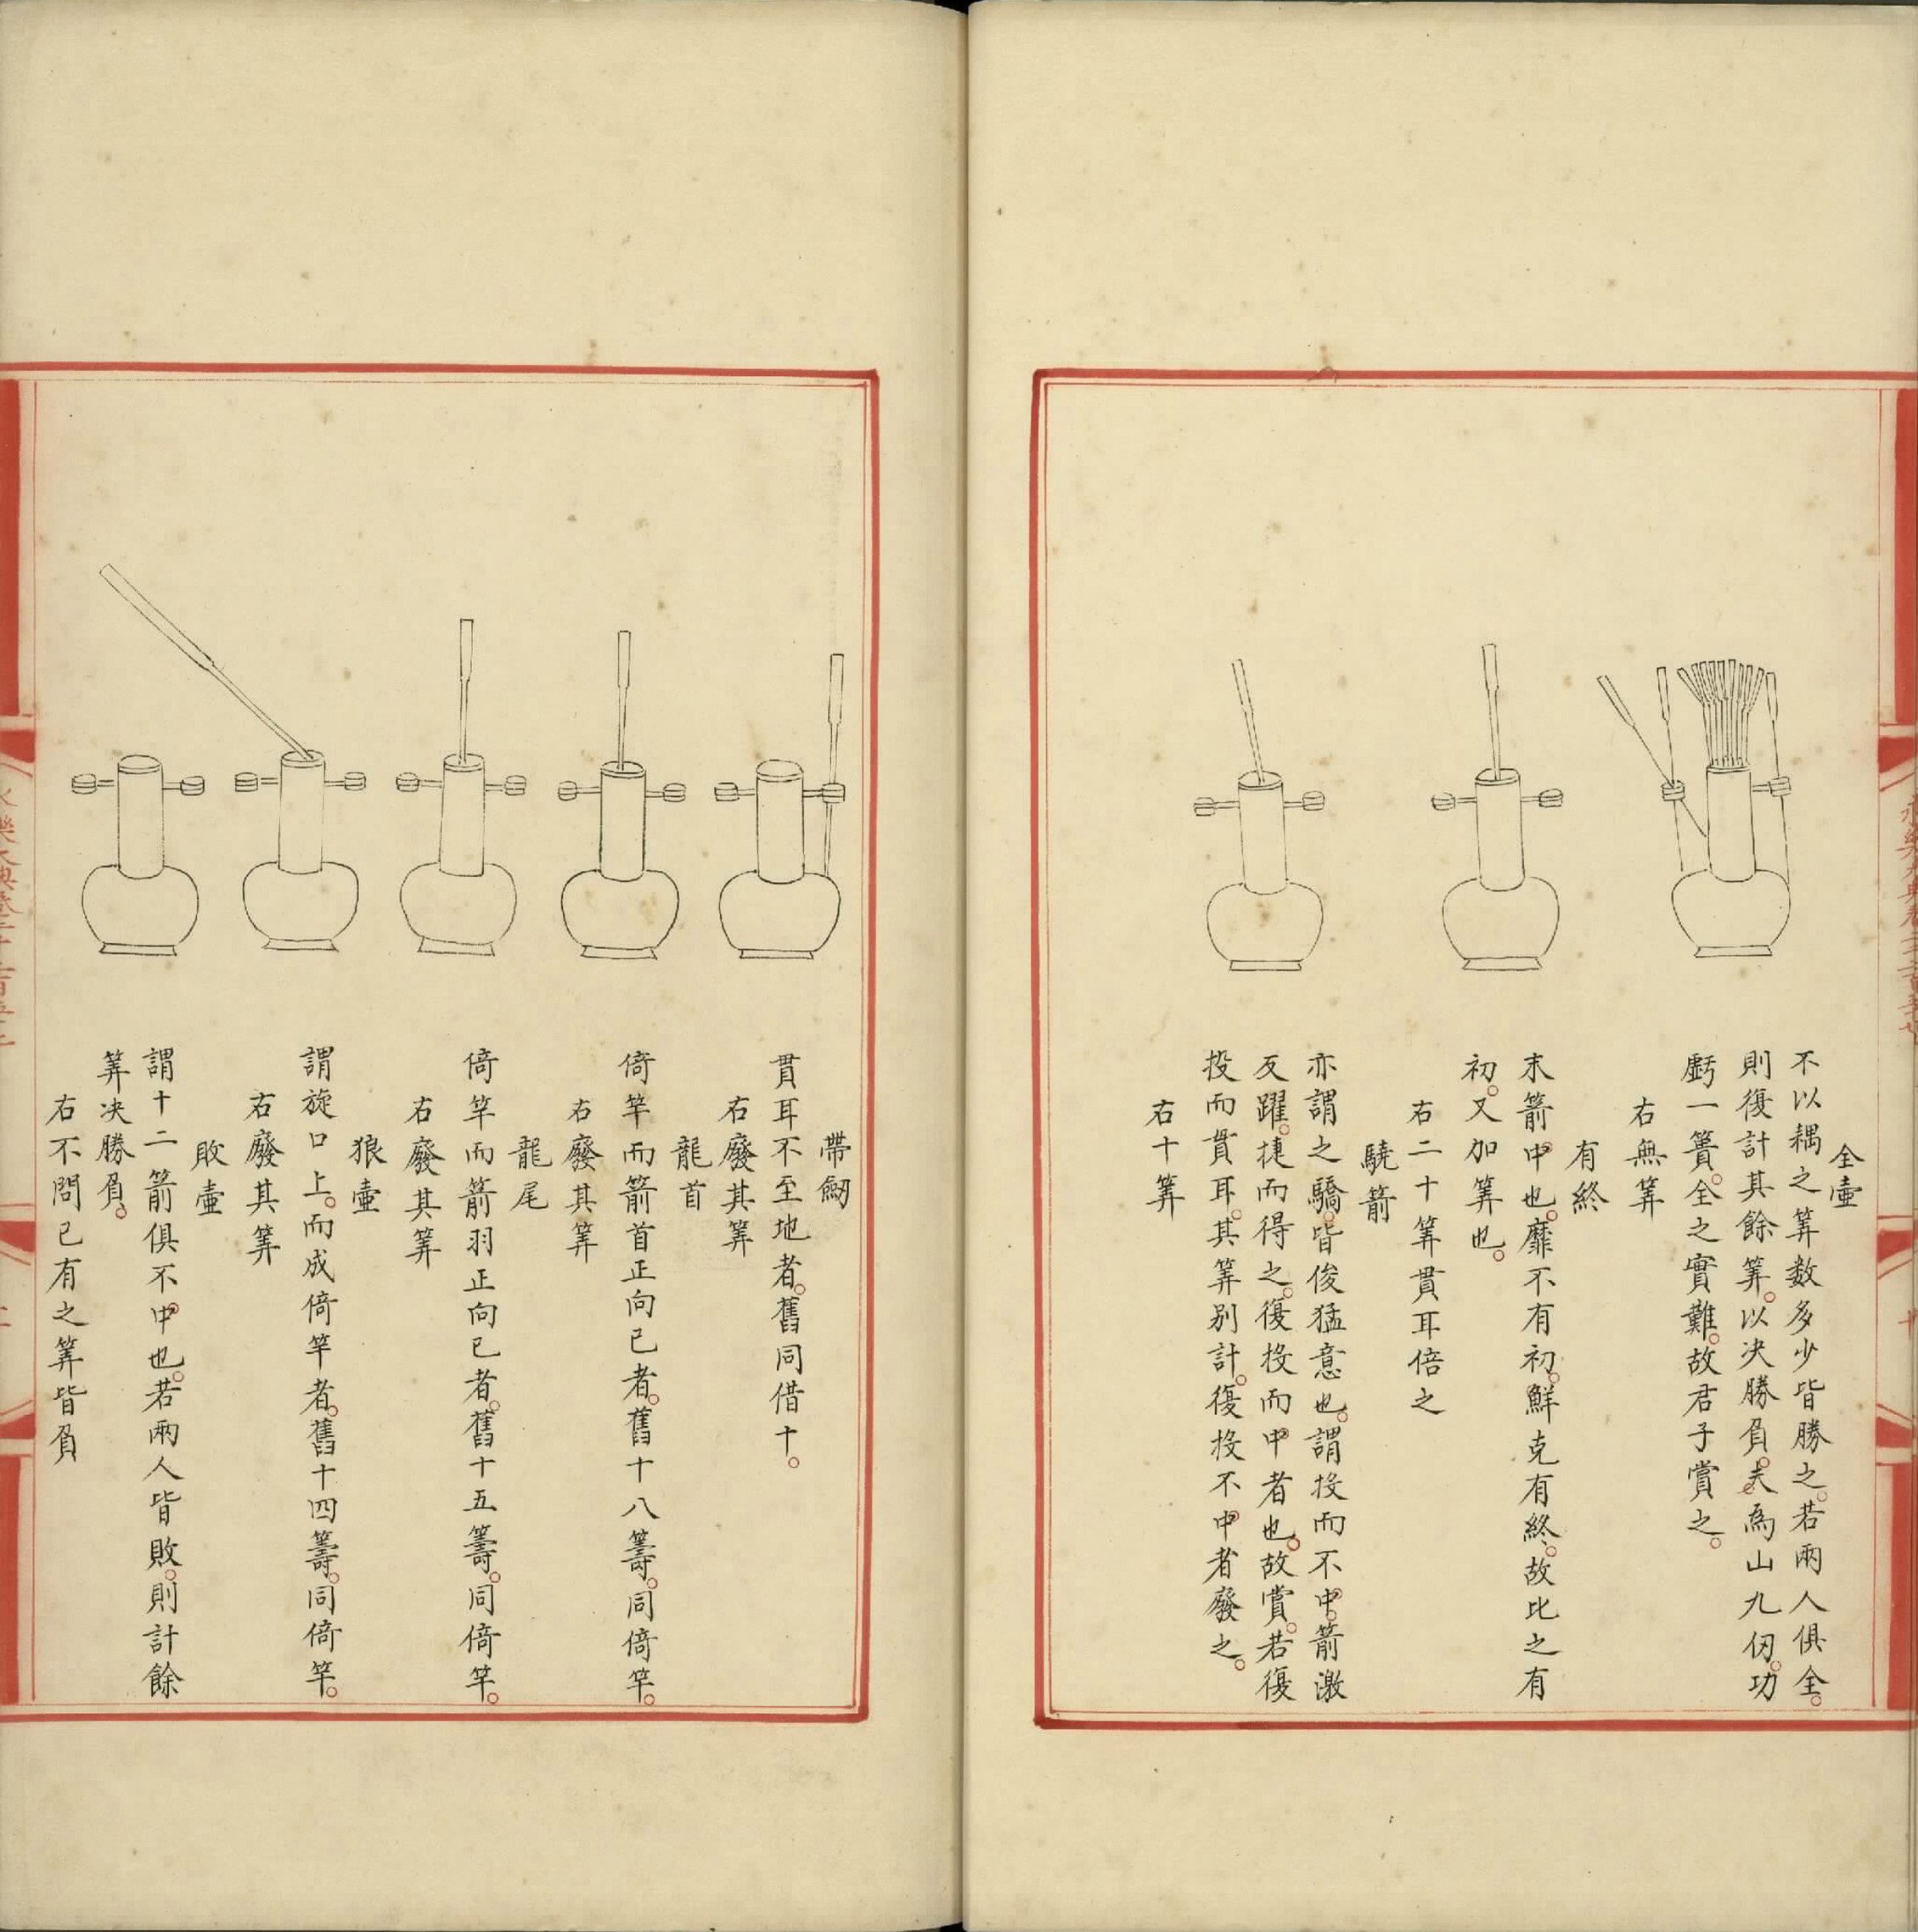 全壺
不以耦之筭數多少皆勝之若兩人俱全
則復計其餘筭以决勝負夫為山九仞功
虧一簣全之實難故君子賞之
右無筭
有終
末箭中也靡不有初鮮克有終故比之有
初又加筭也
右二十筭貫耳倍之
驍箭
亦謂之驕皆俊猛意也謂投而不中箭激
反躍捷而得之復投而中者也故賞若復
投而貫耳其筭别計復投不中者廢之
右十筭
帶劒
貫耳不至地者舊同借十
右廢其筭
龍首
倚竿而箭首正向已者舊十八籌同倚竿
右廢其筭
龍尾
倚竿而箭羽正向已者舊十五籌同倚竿
右廢其筭
狼壺
謂旋口上而成倚竿者舊十四籌同倚竿
右廢其筭
敗壺
謂十二箭俱不中也若兩人皆敗則計餘
筭决勝負
右不問已有之筭皆負